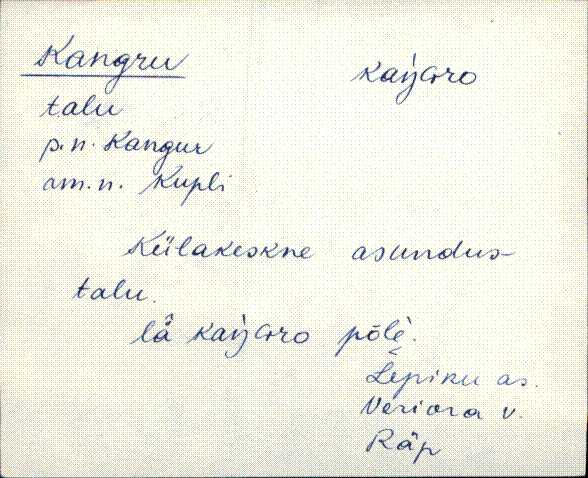 Kangru kaŋGro
talu
p.n. Kangur
am.n. Kupli
Külakeskne asundus-
talu.
lä̂ kaŋGro põlè.
Lepiku as.
Veriora v.
Räp